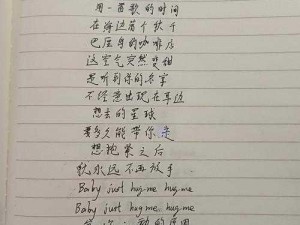 用一首歌的时间
在海边看个狄干
巴厘岛的咖啡店
这空气突然变甜
是听到你的名字
不经意出现在耳边
想去的星球
要多久能带你走
想抱紧之后
就永远不再放手
Baby just hug me hug me
Baby just hug me hug me